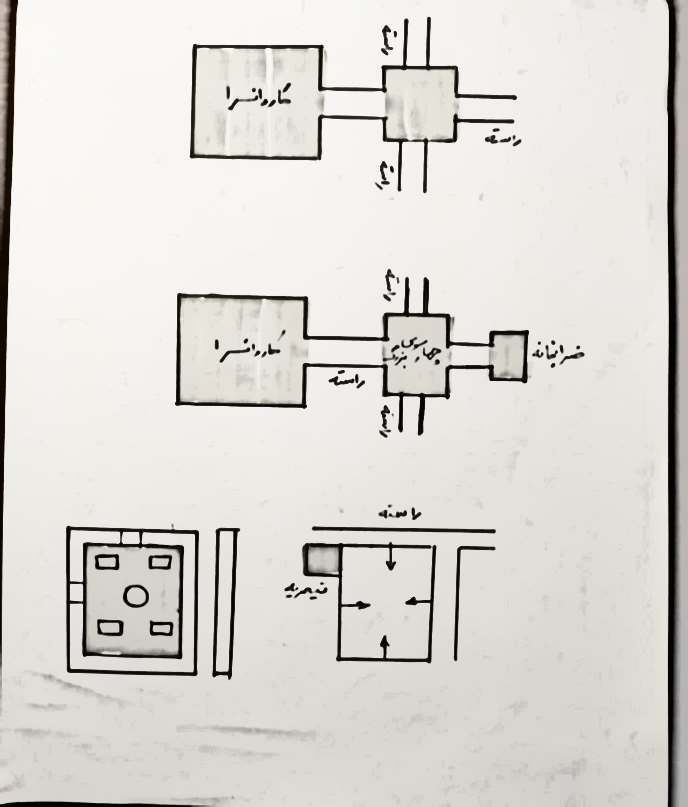 راسته
کاروانسرا
راسته
راسته
راسته
کاروانسرا
چهار سوی
بزرگ
ضرابخانه
راسته
راسته
راسته
قیصریه